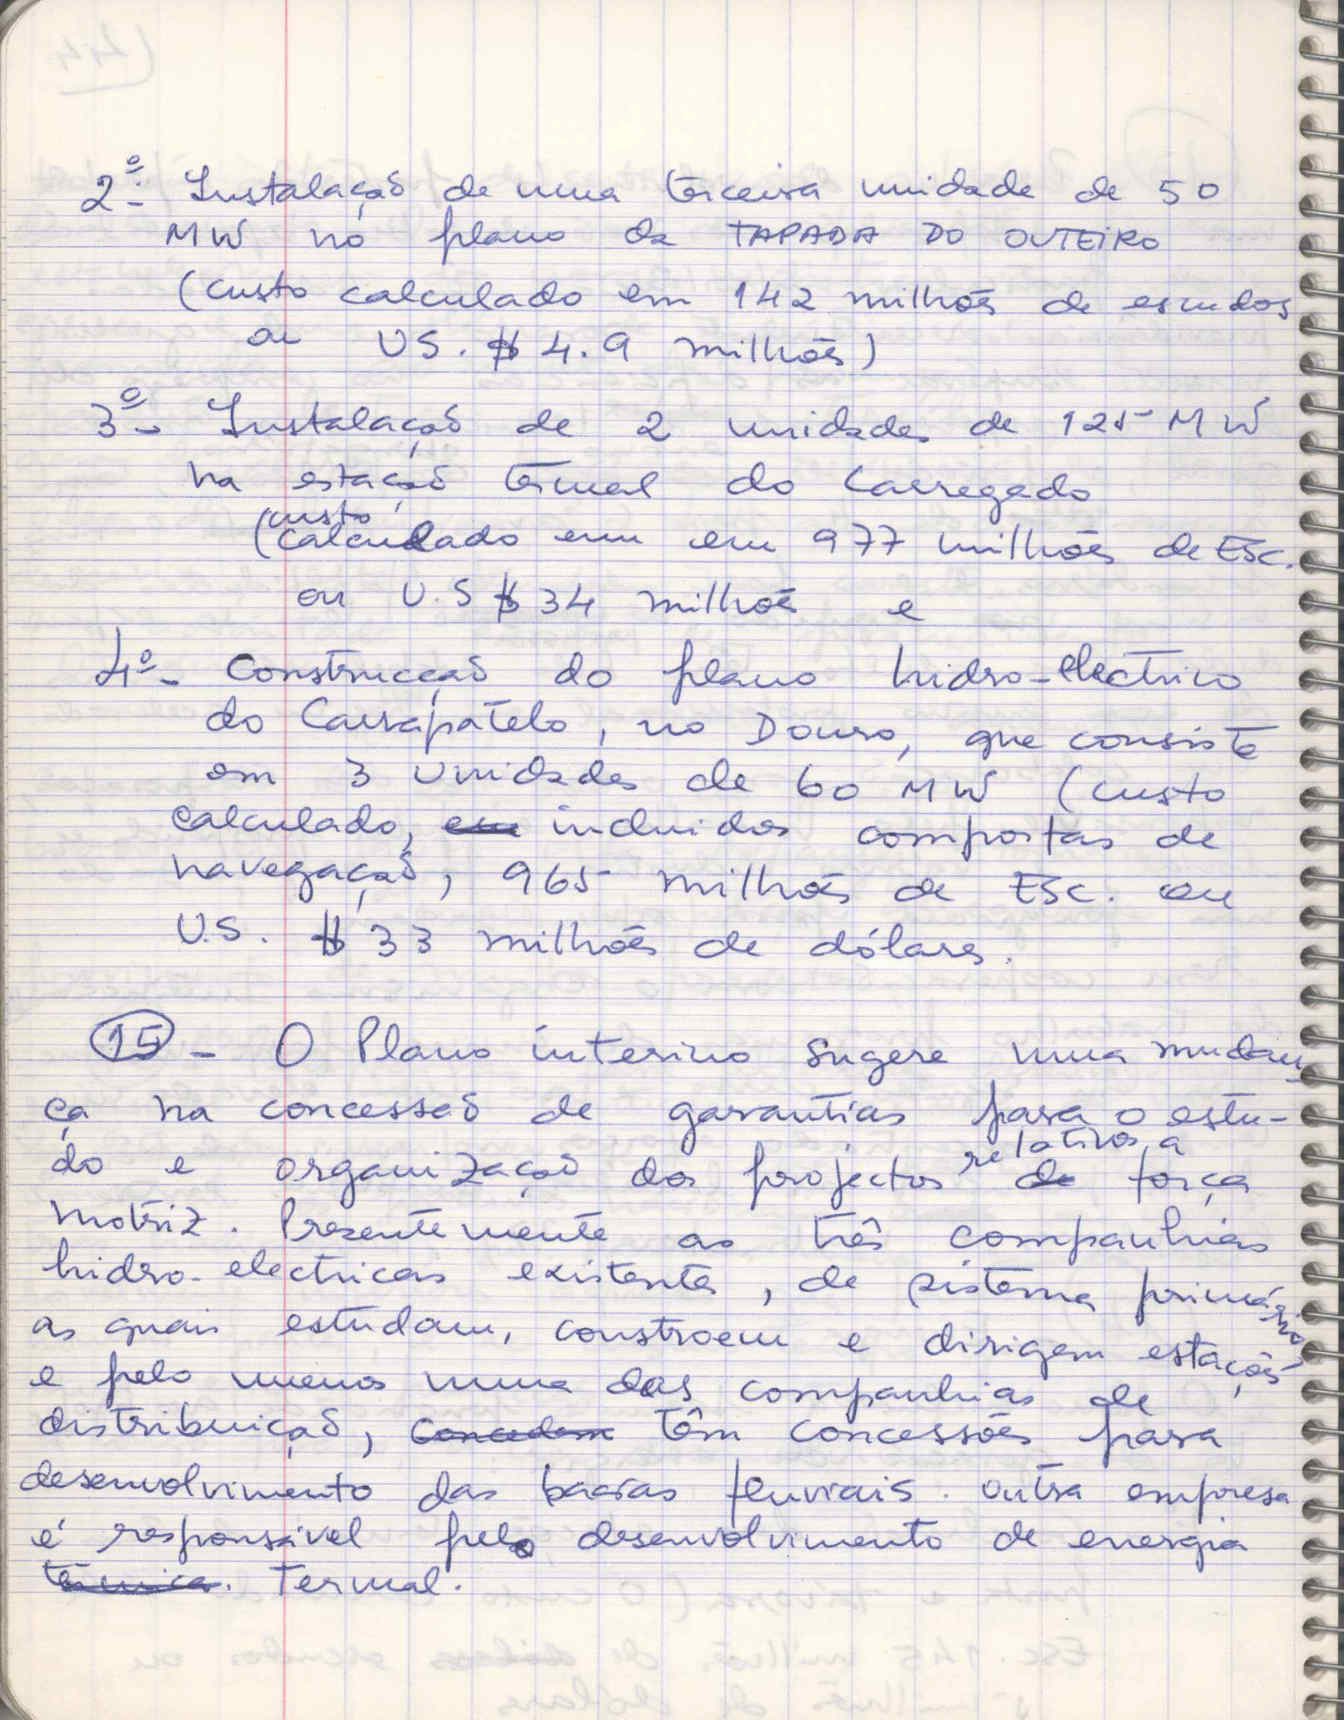 2º- Instalação de uma terceira unidade de 50
MW no plano da TAPADA DO OUTEIRO
(custo calculado em 142 milhões de escudos
ou US. $ 4.9 milhões)
3º- Instalação de 2 unidades de 125 MW
na estação termal do Carregado
(custo
calculado em em 977 milhões de Esc.
ou U.S $ 34 milhões e
4º- Construcção do plano hidro-electrico
do Carrapatelo, no Douro, que consiste
em 3 unidades de 60 MW (custo
calculado, em incluidos comportas de
navegação, 965 milhões de Esc. ou
U.S. $ 33 milhões de dólares.
15 - O Plano interino sugere uma mudan-
ça na concessão de garantias para o estu-
do e organização dos projectos relativos a de força
motriz. Presentemente as três companhias
hidro-electricas existentes, de sistema primário
as quais estudam, constroem e dirigem estações
e pelo menos uma das companhias de
distribuição, Concedem têm concessões para
desenvolvimento das bacias fluviais. Outra empresa
é responsável pelo desenvolvimento de energia
térmica. Termal.